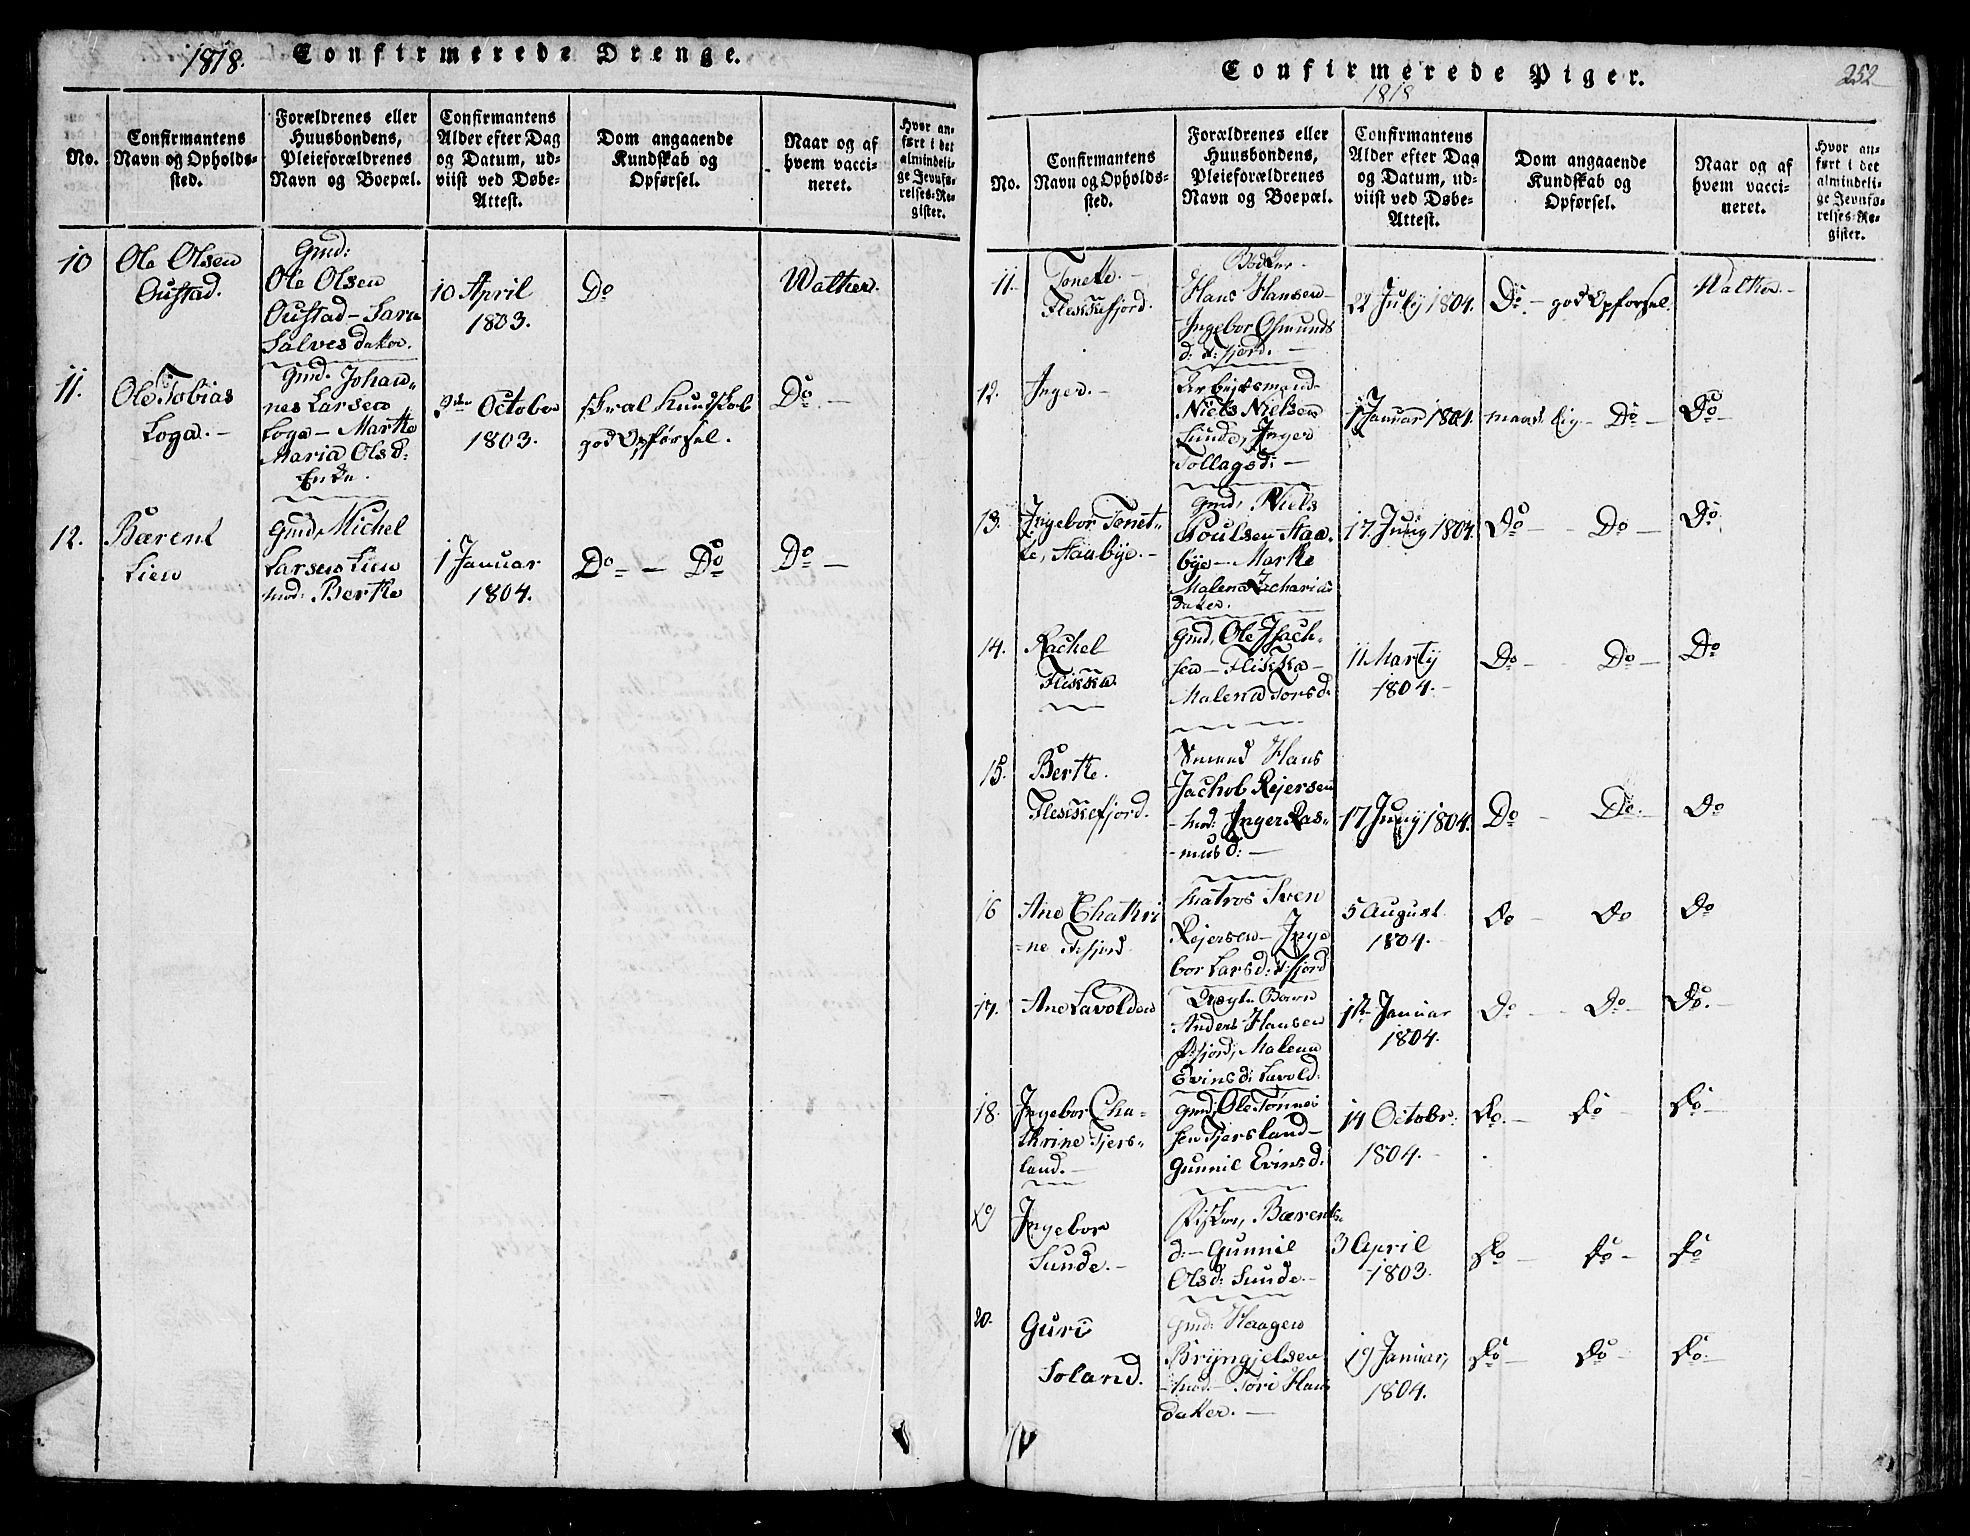 1818. Confirmerede Drenge.
No.
Confirmantens
Navn og Opholds-
sted.
Forældrenes eller
Huusbondens,
Pleieforældrenes
Navn og Boepæl.
Confirmantens
Alder efter Dag
og Datum, ud-
viist ved Døbe-
Attest.
Dom angaaende
Kundskab og
Opførsel.
Naar og af
hvem vacci-
neret.
Hvor an-
ført i det
almindeli-
ge Jevnfø-
relses-Re-
gister.
10
Ole Olsen
Oustad.
Gmd:
Ole Olsen
Oustad - Sara
Salvesdatter.
10 April
1803.
Do
Walther.
11.
Ole Tobias
Loga. -
Gmd. Johan-
nes Larsen
Loga - Marthe
Maria Olsd:
Enke.
October
1803.
skral Kundskab
god Opførsel.
Do. -
12.
Bærent
Lien
Gmd, Michel
Larsen Lien
mod: Berthe
1 Januar
1804.
Do - Do
Do -
Confirmerede Piger.
1818
252
No.
Confirmantens
Navn og Opholds-
sted.
Forældrenes eller
Huusbondens,
Pleieforældrenes
Navn og Boepæl.
Confirmantens
Alder efter Dag
og Datum, ud-
viist ved Døbe-
Attest.
Dom angaaende
Kundskab og
Opførsel.
Naar og af
hvem vacci-
neret.
Hvor an-
ført i det
almindeli-
ge Jevnfø-
relses-Re-
gister.
11.
Tonette. -
Flekkefjord.
Bødker
Hans Hansen -
Ingebor Osmunds
d: F:fjord. -
22 July 1804.
Do. - god Opførsel.
Walther. -
12.
Inger. -
Arbejdsmand
Niels Nielsen
Sunde, Inger
Tollagsd: -
1 Januar 1804.
maadelig - Do -
Do -
13.
Ingebor Tonet-
te, Staubye. -
Gmd, Niels
Poulsen Stau-
bye - Marthe
Malena Zacharias
datter.
17. Juny 1804.
Do - Do -
Do
14.
Rachel
Flikka.
Gmd, Ole Isach-
sen - Flikka -
Malena Torsd:
11 Marty
1804. -
Do - Do -
Do
15.
Berthe.
Flekkefjord.
Smed Hans
Jachob Rejersen
- mod: Inger Ras-
musd: -
17 Juny 1804.
Do - Do.
Do
16
Ane Chathri
-ne F:fjord
Matros Sven
Rejersen - Inge
bor Larsd: F:fjord
5 August
1804. -
Do - Do
Do
17.
Ane Lavolden
Uægte Barn
Anders Hansen
F:fjord, Malena
Evinsd: Lavold:
1ste Januar
1804.
Do - Do -
Do. -
18.
Ingebor Cha-
thrine Fjers-
land. -
Gmd, Ole Tønnes
sen Fjersland -
Gunnil Evinsd.
14 Octobr:
1804. -
Do. - Do -
Do -
19
Ingebor
Sunde. -
Bærents
d: - Gunnil
Olsd: Sunde. -
3 April
1803.
Do - Do -
Do
20.
Guri
Soland.
Gmd: Haagen
Bryngjelsen
- mod - Tori Hans
datter. -
19 Januar,
1804.
Do - Do -
Do -